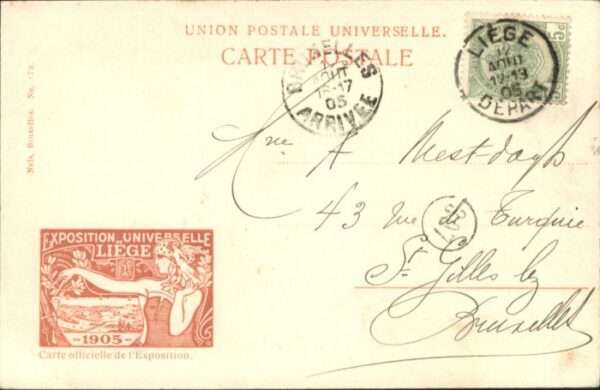 UNION POSTALE UNIVERSELLE.
CARTE POSTALE
LIÉGE
12
AOUT
12-13
05
DEPART
5c
BRUXELLES
AOUT
16-17
05
ARRIVÉE
Nels, Bruxelles
Mme A Mestdagh
43 rue de Turquie
St Gilles lez
Bruxelles
EXPOSITION UNIVERSELLE
LIÈGE
-1905-
Carte officielle de l'Exposition.